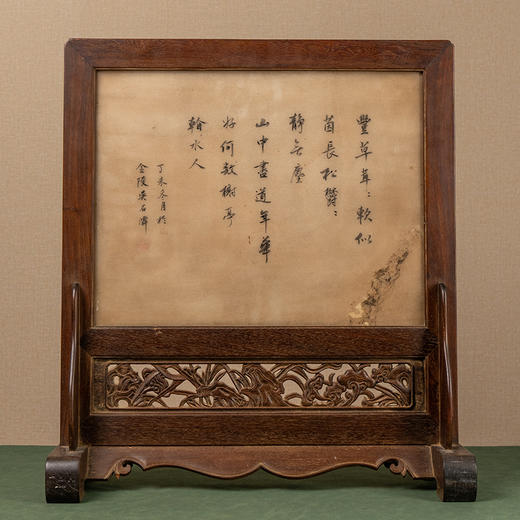 豐草茸：軟似
茵長松鬱：
靜無塵
山中盡道年華
好何數樹亭
輪水人
丁未冬月於
金陵吳石濤